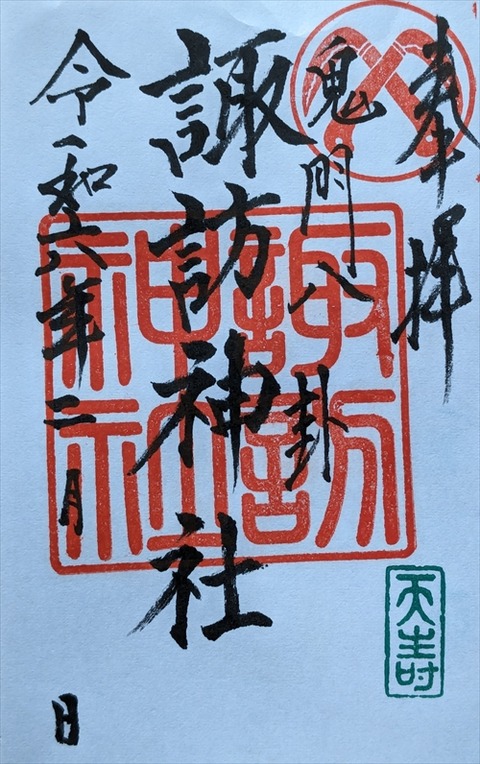 奉拝
鬼門八卦
諏訪神社
令和六年二月 日
諏訪
神社
天寿